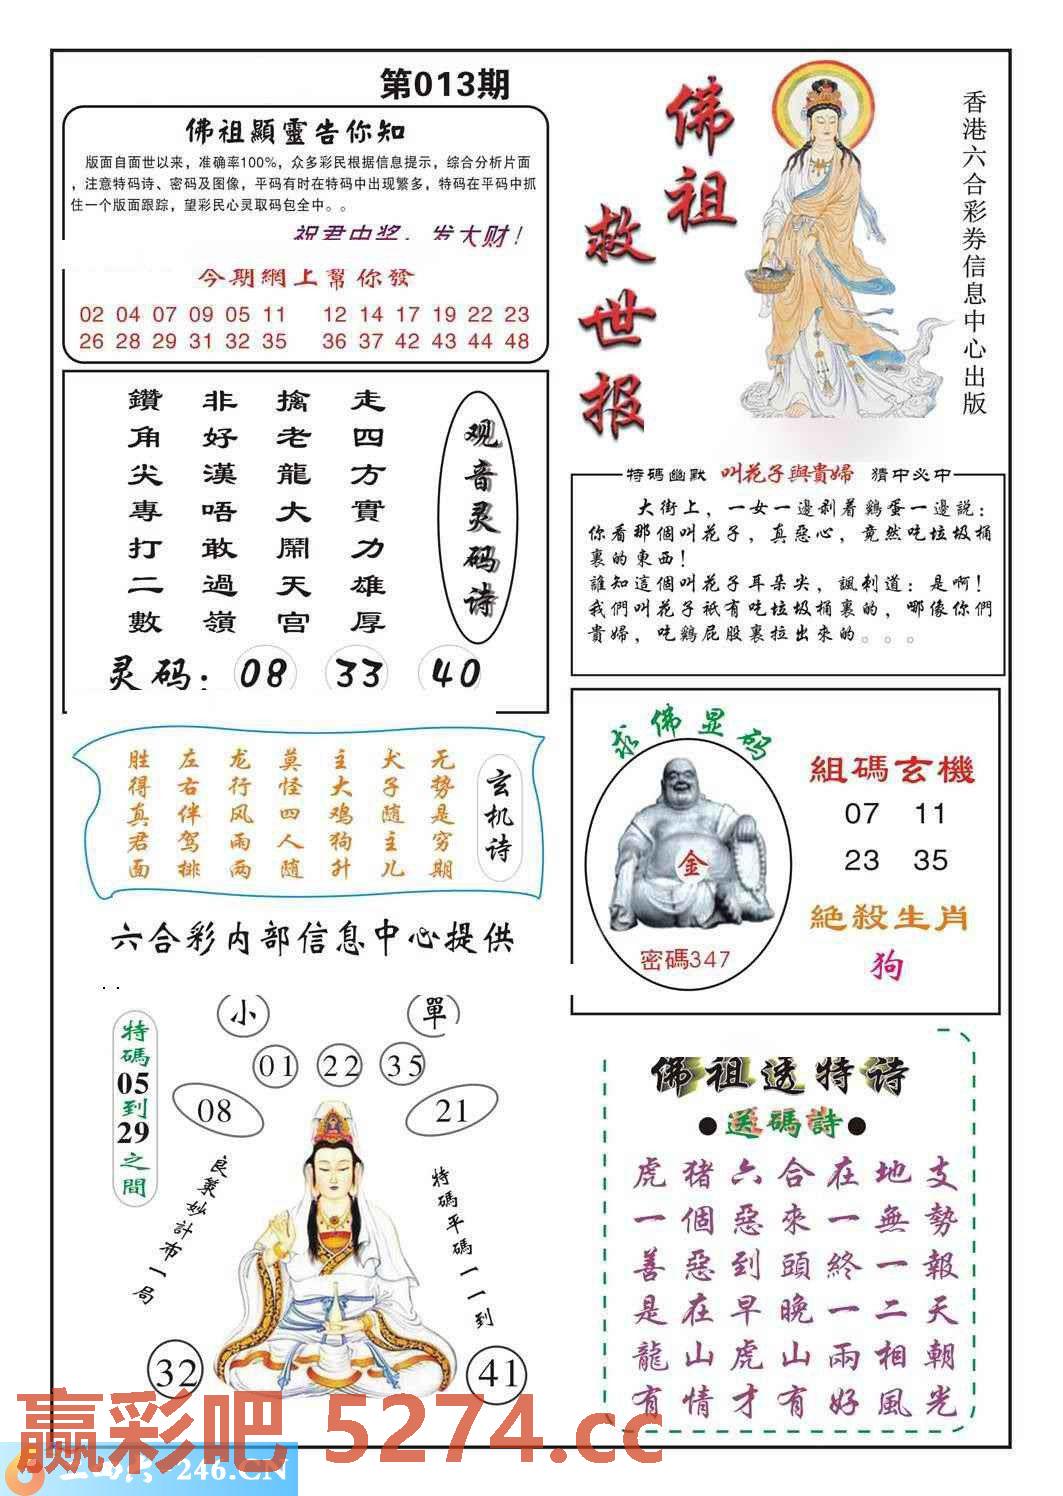 第013期
佛祖顯靈告你知
版面自面世以来，准确率100%，众多彩民根据信息提示，综合分析片面
，注意特码诗、密码及图像，平码有时在特码中出现繁多，特码在平码中抓
住一个版面跟踪，望彩民心灵取码包全中。。
祝君中奖，发大财！
今期網上幫你發
02 04 07 09 05 11 12 14 17 19 22 23
26 28 29 31 32 35 36 37 42 43 44 48
佛祖
救世报
香港六合彩券信息中心出版
观音灵码诗
走四方實力雄厚
擒老龍大鬧天宮
非好漢唔敢過嶺
鑽角尖專打二數
灵码：08 33 40
特碼幽默 叫花子與貴婦 猜中必中
大街上，一女一邊剥着鷄蛋一邊説：
你看那個叫花子，真惡心，竟然吃垃圾桶
裏的東西！
誰知這個叫花子耳朵尖，諷刺道：是啊！
我們叫花子衹有吃垃圾桶裏的，哪像你們
貴婦，吃鷄屁股裏拉出來的。。。
玄机诗
无势是穷期
犬子随主儿
主大鸡狗升
莫怪四人随
龙行风雨两
左右伴驾排
胜得真君面
六合彩内部信息中心提供
求佛显码
金
密碼347
組碼玄機
07 11
23 35
絕殺生肖
狗
小 單
01 22 35
08 21
特碼05到29之間
良策妙計布一局
特碼平碼一一到
32 41
佛祖透特诗
●送碼詩●
虎猪六合在地支
一個惡來一無勢
善惡到頭終一報
是在早晚一二天
龍山虎山兩相朝
有情才有好風光
赢彩吧 5274.cc
246.CN